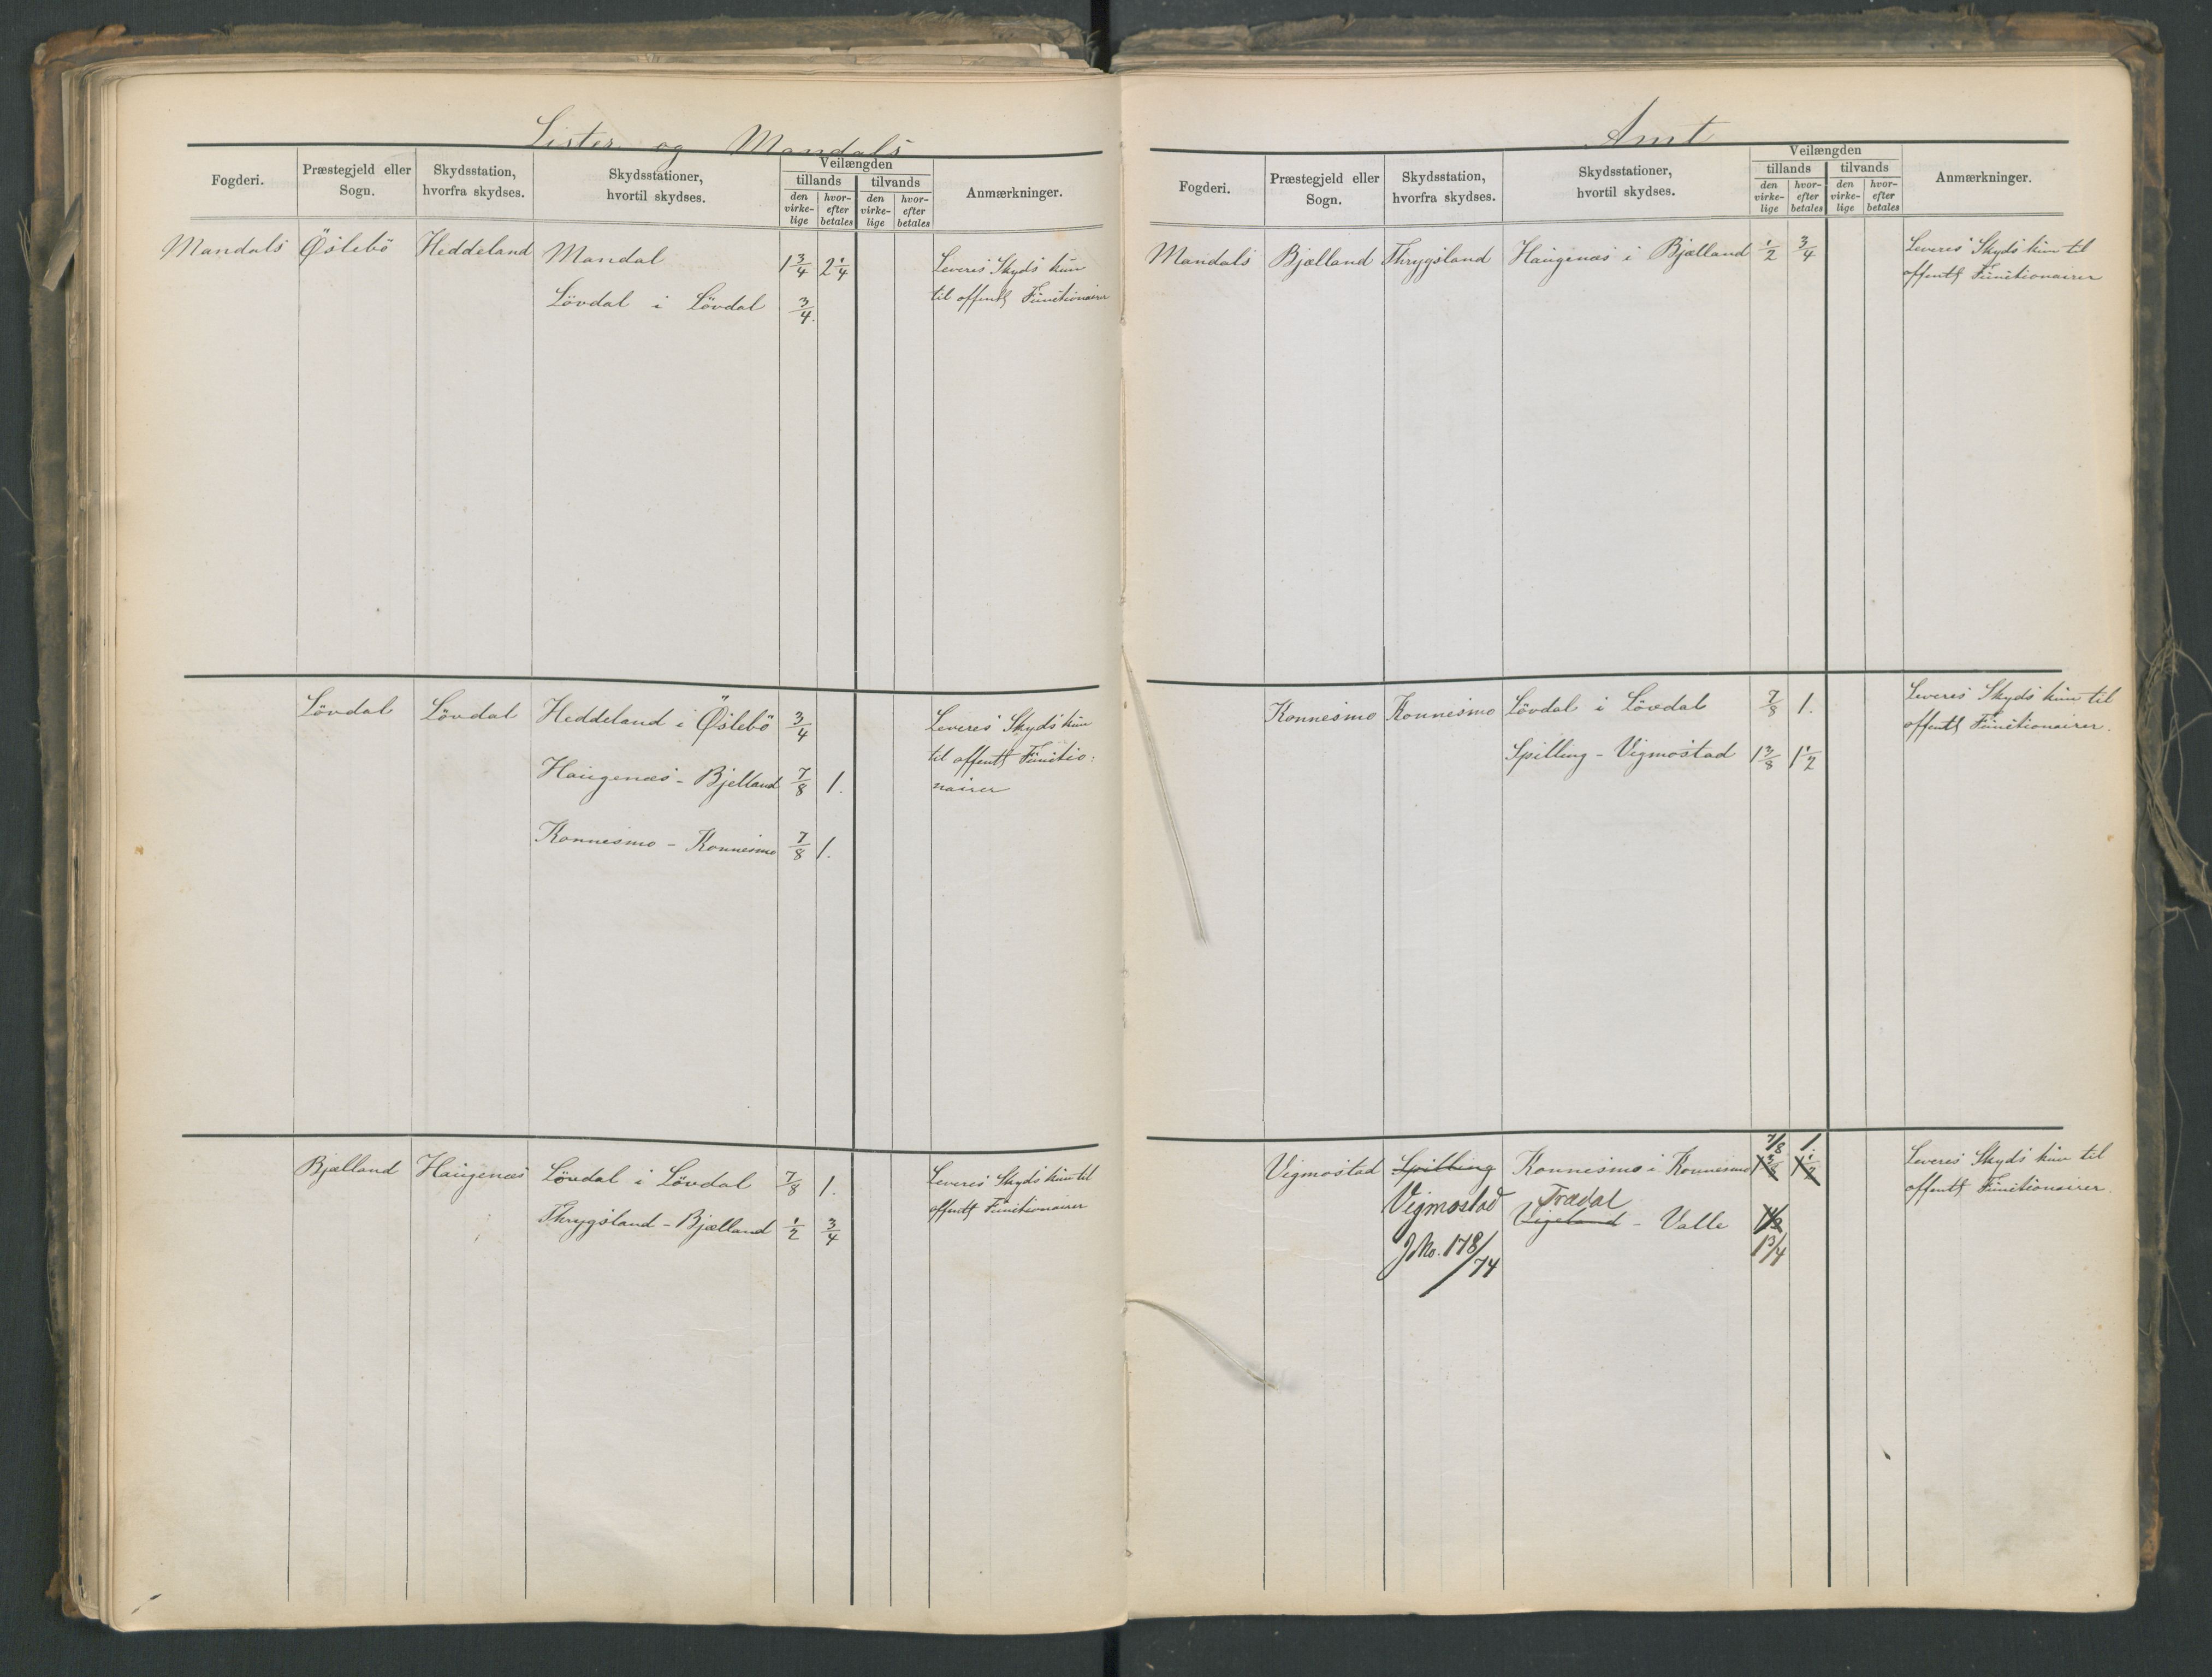 Lister og Mandals
Fogderi. Præstegjeld eller Sogn. Skydsstation, hvorfra skydses. Skydsstationer, hvortil skydses. Veilængden tillands den virkelige hvorefter betales tilvands den virkelige hvorefter betales Anmærkninger.
Mandals Öslebö Heddeland Mandal 1 3/4 2 1/4 Leveres Skyds kun
Lövdal i Lövdal 3/4. til offentl Functionairer
Lövdal Lövdal Heddeland i Öslebö 3/4 Leveres Skyds kun
til offentl Functio:
Haugenæs - Bjelland 7/8 1. nairer
Konnesmo - Konnesmo 7/8 1.
Bjælland Haugenæs Lövdal i Lövdal 7/8 1. Leveres Skyds kun til
offentl Functionairer
Thrygsland - Bjælland 1/2 3/4
Amt
Fogderi. Præstegjeld eller Sogn. Skydsstation, hvorfra skydses. Skydsstationer, hvortil skydses. Veilængden tillands den virkelige hvorefter betales tilvands den virkelige hvorefter betales Anmærkninger.
Mandals Bjælland Thrygsland Haugenæs i Bjælland 1/2 3/4 Leveres Skyds kun til
offentl Functionairer
Konnesmo Konnesmo Lövdal i Lövdal 7/8 1. Leveres Skyds kun til
offentl Functionairer.
Spilling - Vigmostad 1 3/8 1 1/2
7/8 1.
Vigmostad Spilling Konnesmo i Konnesmo 1 3/8 1 1/2 Leveres Skyds kun til
offentl Functionairer.
Vigmostad Trædal
Vigeland - Valle
J No. 178/74 1 3/4